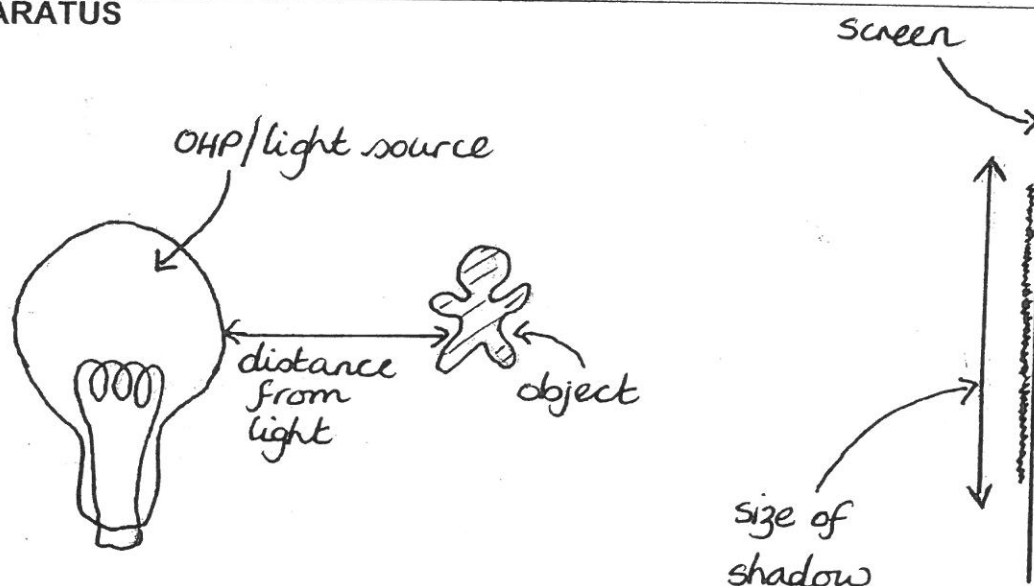 ARATUS
Screen
OHP/light source
distance
from
light
object
size of
shadow